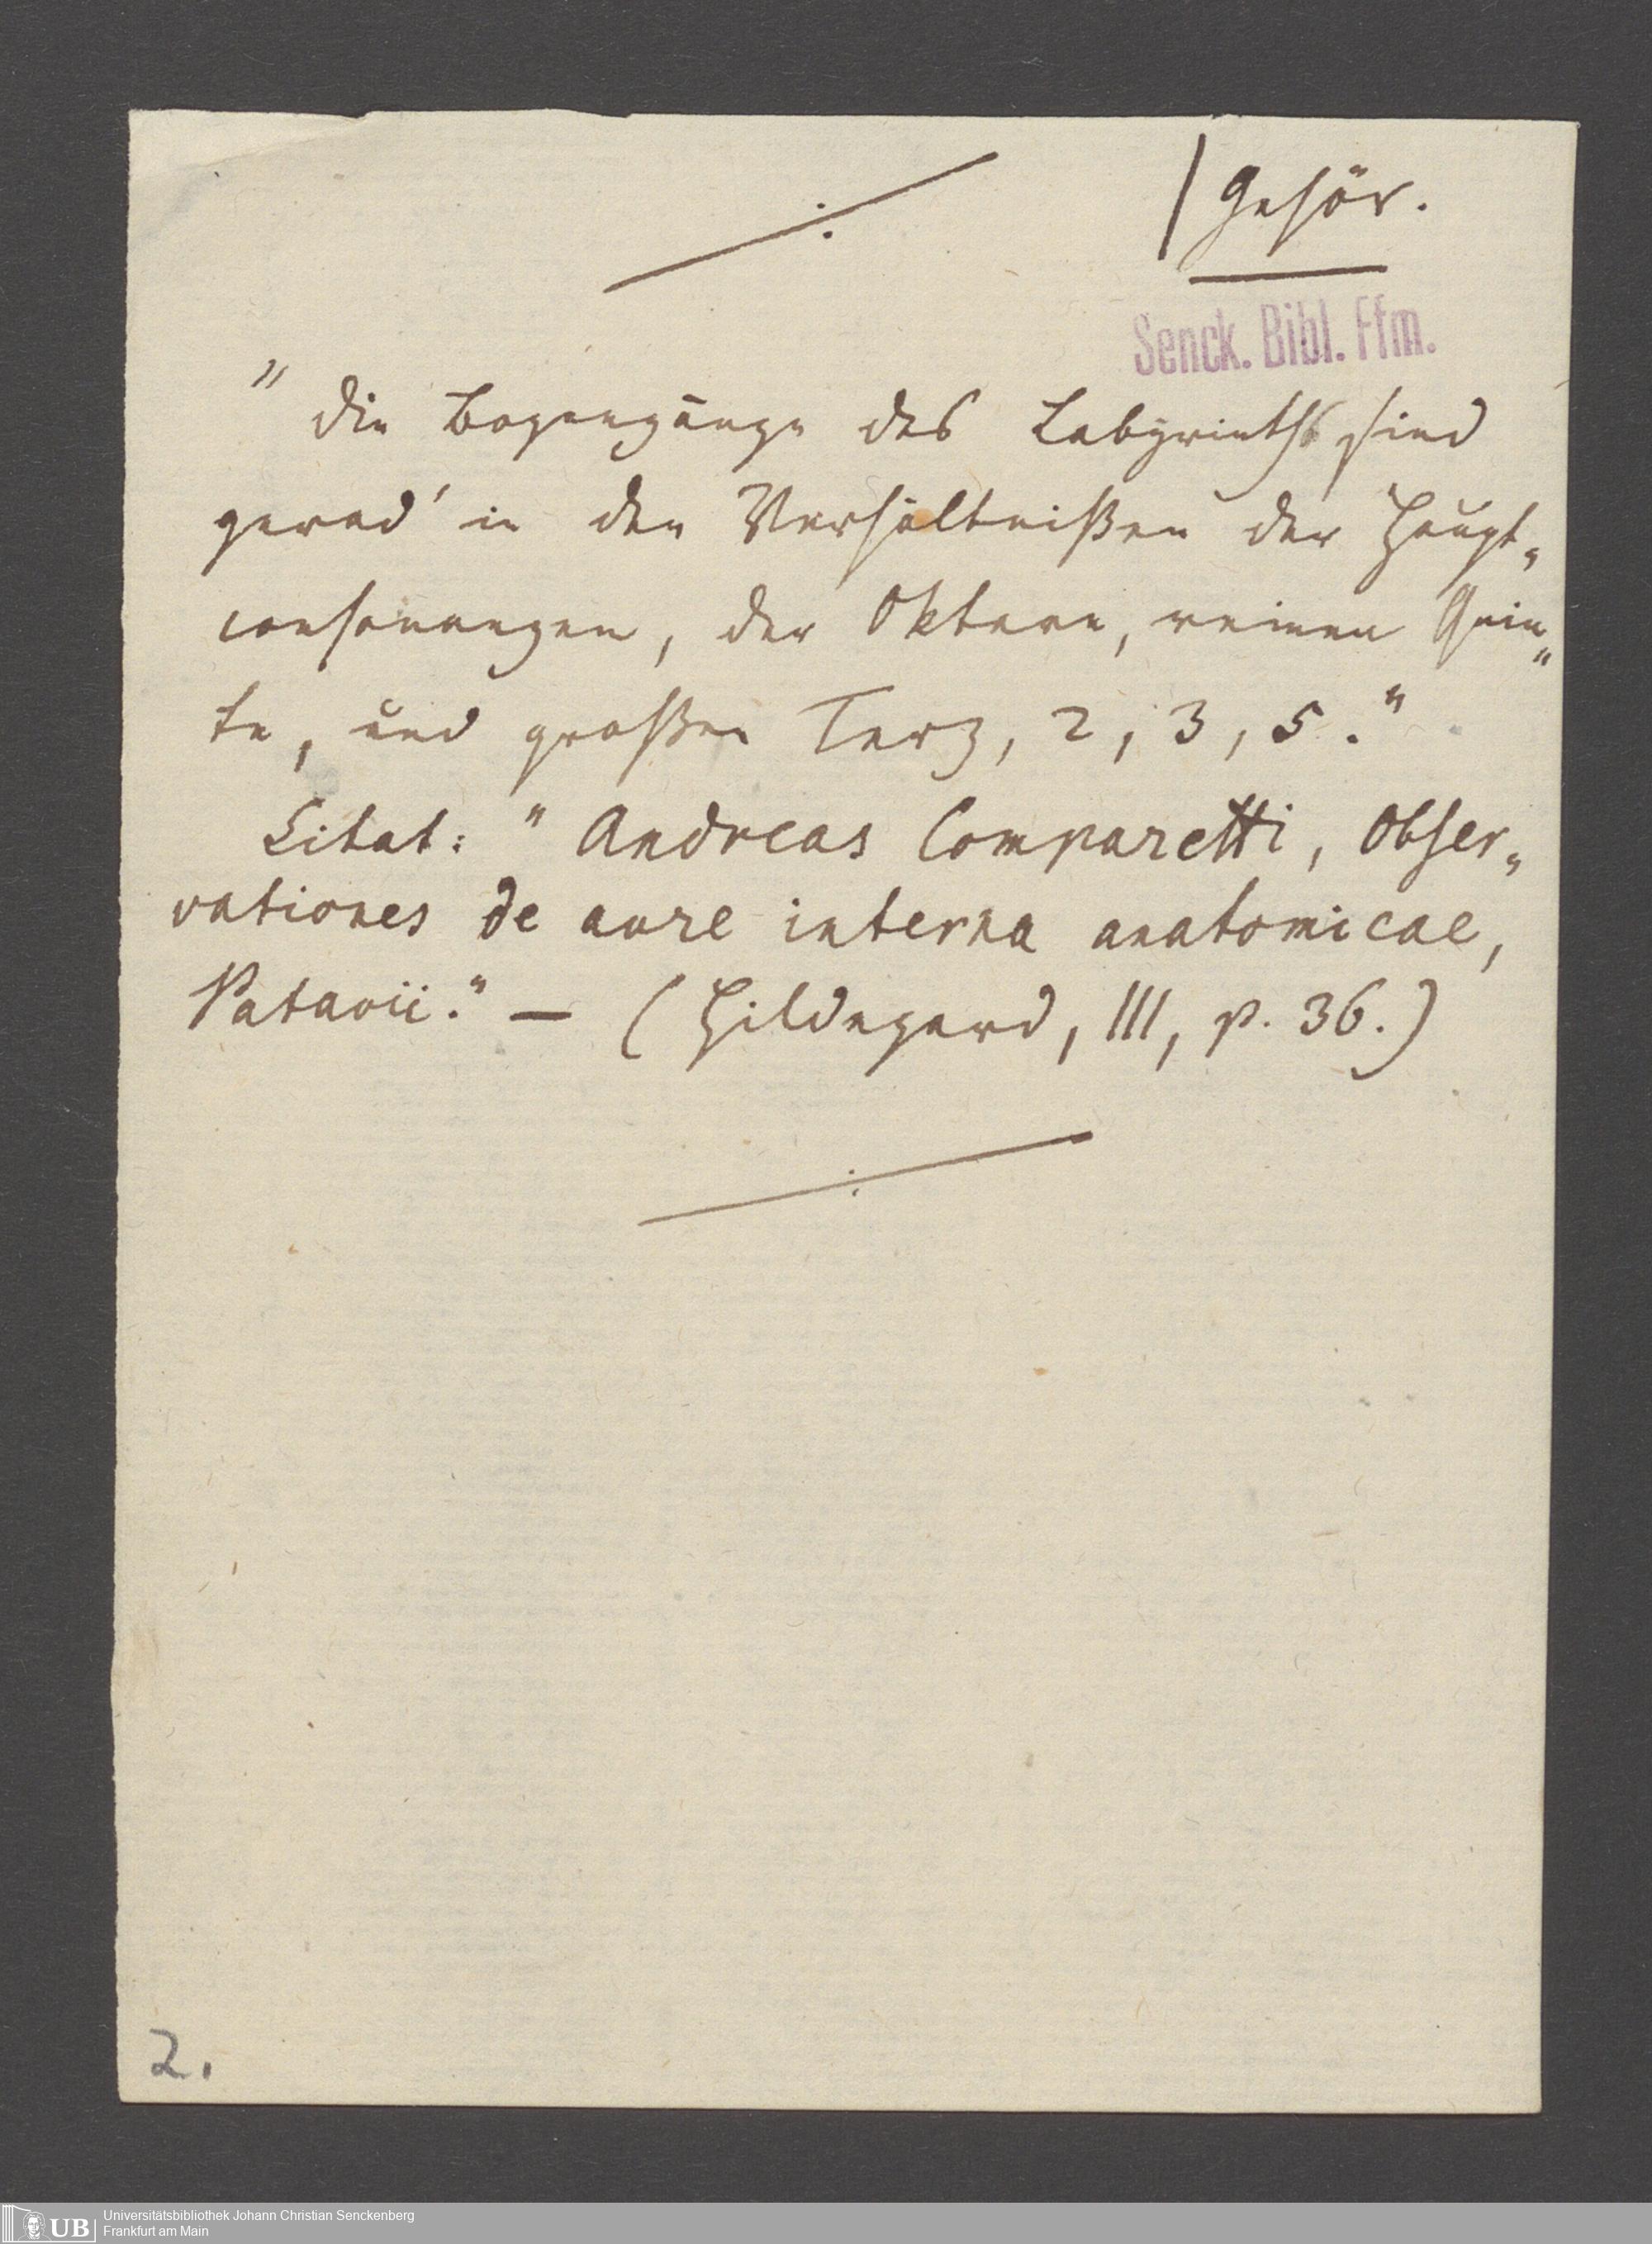 Gehör.
Senck. Bibl. Ffm.
" die Bogengänge des Labyrinths sind
gerad' in den Verhältnißen der Haupt-
consonanzen, der Oktave, reinen Quin-
te, und großen Terz, 2, 3, 5."
Citat: " Andreas Comparetti, Obser-
vationes de aure interna anatomicae,
Patavii." — ( Hildegard, III, p. 36.)
2.
UB Universitätsbibliothek Johann Christian Senckenberg
Frankfurt am Main